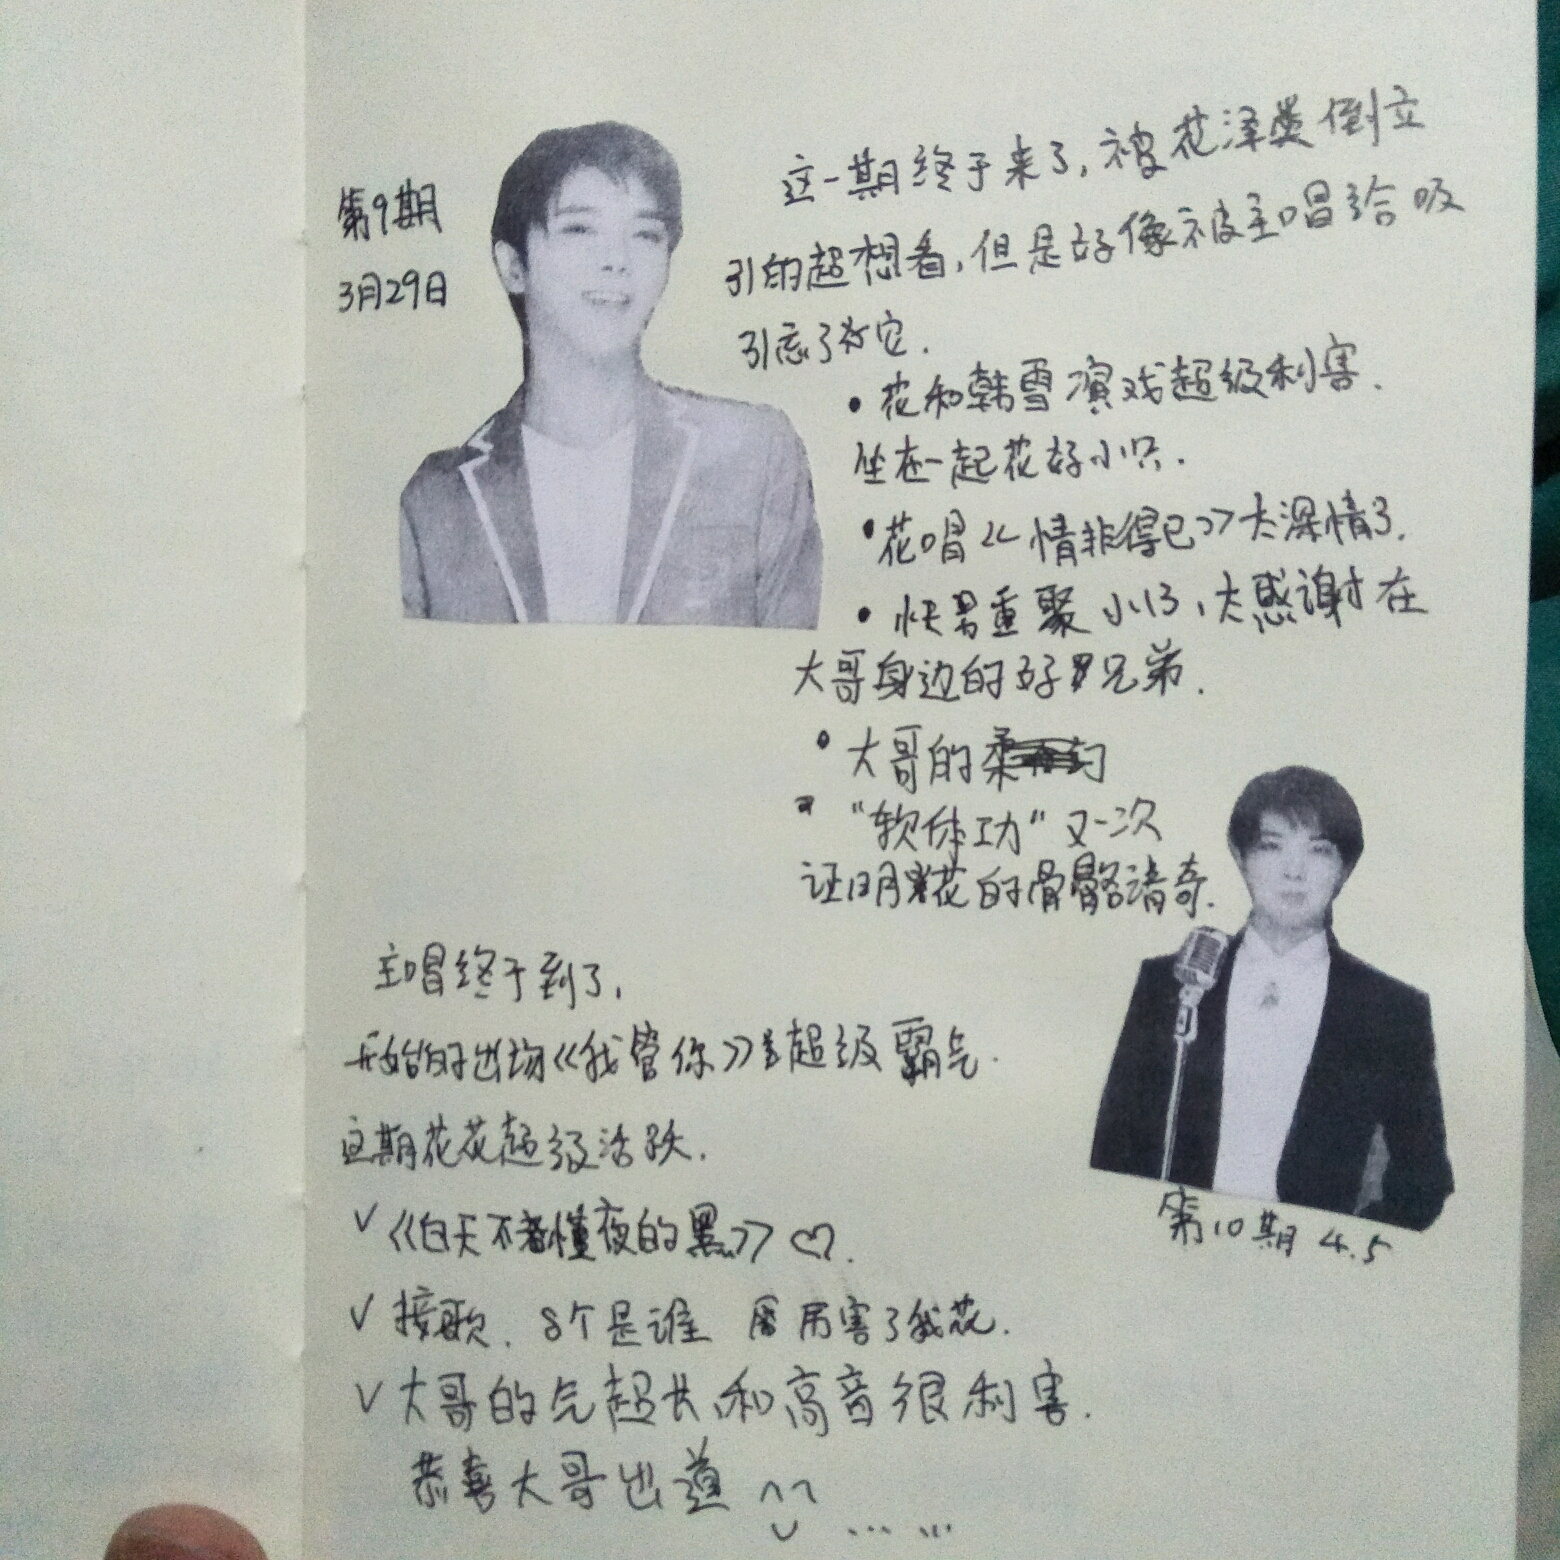 第9期
3月29日
这一期终于来了,被花泽类倒立
引的超想看,但是好像被主唱给吸
引忘了次它.
• 花和韩雪演戏超级利害.
坐在一起花好小只.
• 花唱《情非得已》太深情了.
• 快男重聚小13,太感谢在
大哥身边的好兄弟.
• 大哥的柔
"软体功"又一次
证明花的骨骼清奇.
主唱终于到了,
开始的出场《我管你》超级霸气.
这期花花超级活跃.
√《白天不懂夜的黑》♡.
√ 接歌. 8个是谁 厉害了我花.
√ 大哥的气超长和高音很利害.
恭喜大哥出道 ... ...
第10期 4.5